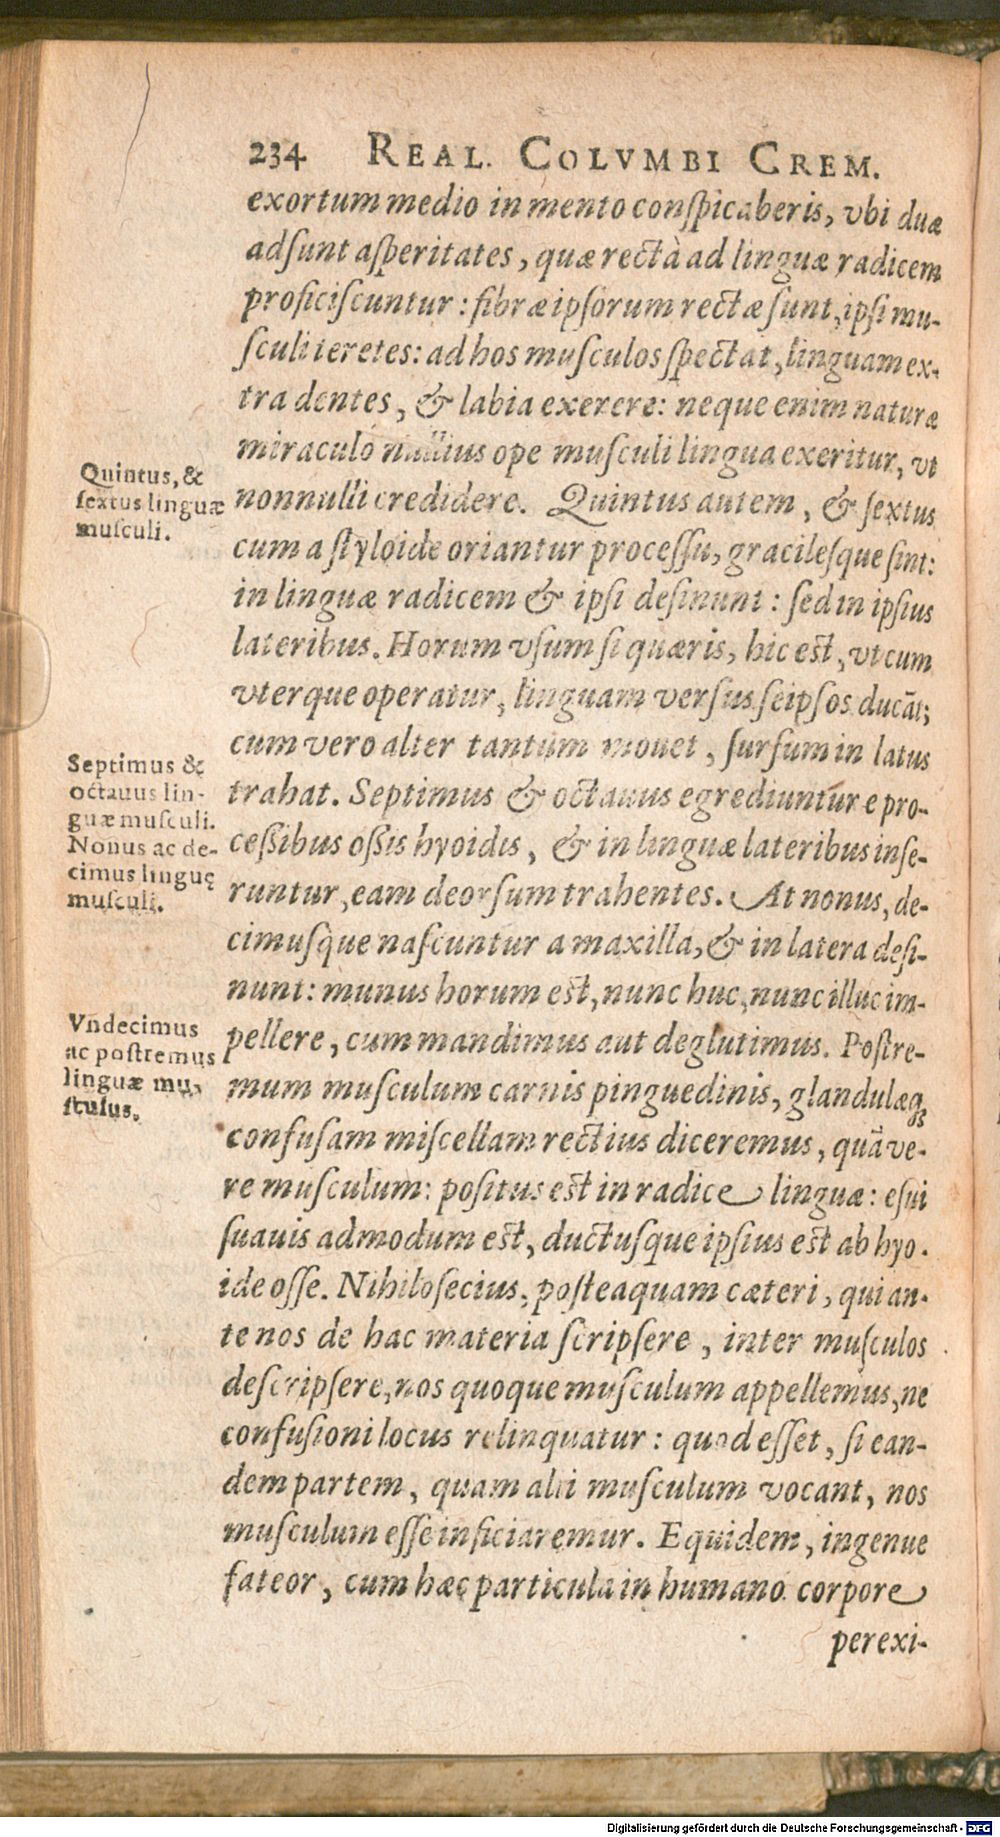 234 REAL. COLVMBI CREM.
exortum medio in mento conſpicaberis, vbi duæ
adſunt aſperitates, quæ rectà ad linguæ radicem
proficiſcuntur: fibræ ipſorum rectæ ſunt, ipſi mu-
ſculi teretes: ad hos muſculos ſpectat, linguam ex-
tra dentes, & labia exerere: neque enim naturæ
miraculo nullius ope muſculi lingua exeritur, vt
nonnulli credidere. Quintus autem, & ſextus
cum a ſtyloide oriantur proceſſu, gracileſque ſint:
in linguæ radicem & ipſi deſinunt: ſed in ipſius
lateribus. Horum vſum ſi quæris, hic est, vt cum
vterque operatur, linguam verſus ſeipſos ducāt;
cum vero alter tantum mouet, ſurſum in latus
trahat. Septimus & octauus egrediuntur e pro-
ceßibus oßis hyoidis, & in linguæ lateribus inſe-
runtur, eam deorſum trahentes. At nonus, de-
cimuſque naſcuntur a maxilla, & in latera deſi-
nunt: munus horum est, nunc huc, nunc illuc im-
pellere, cum mandimus aut deglutimus. Poſtre-
mum muſculum carnis pinguedinis, glandulæq́;
confuſam miſcellam rectius diceremus, quā ve-
re muſculum: poſitus est in radice linguæ: eſui
ſuauis admodum est, ductuſque ipſius est ab hyo-
ide oſſe. Nihiloſecius, poſteaquam cæteri, qui an-
te nos de hac materia ſcripſere, inter muſculos
deſcripſere, nos quoque muſculum appellemus, ne
confuſioni locus relinquatur: quod eſſet, ſi ean-
dem partem, quam alii muſculum vocant, nos
muſculum eſſe inficiaremur. Equidem, ingenue
fateor, cum hæc particula in humano corpore
perexi-
Quintus, &
ſextus linguæ
muſculi.
Septimus &
octauus lin-
guæ muſculi.
Nonus ac de-
cimus linguę
muſculi.
Vndecimus
ac poſtremus
linguæ mu-
ſculus.
Digitalisierung gefördert durch die Deutsche Forschungsgemeinschaft - DFG